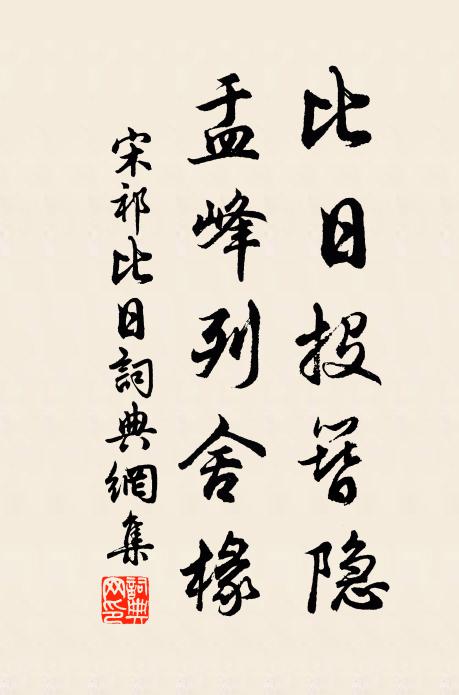 比日投簪隐
盂峰列舍椽
宋祁比日詞典網集
詞典网印